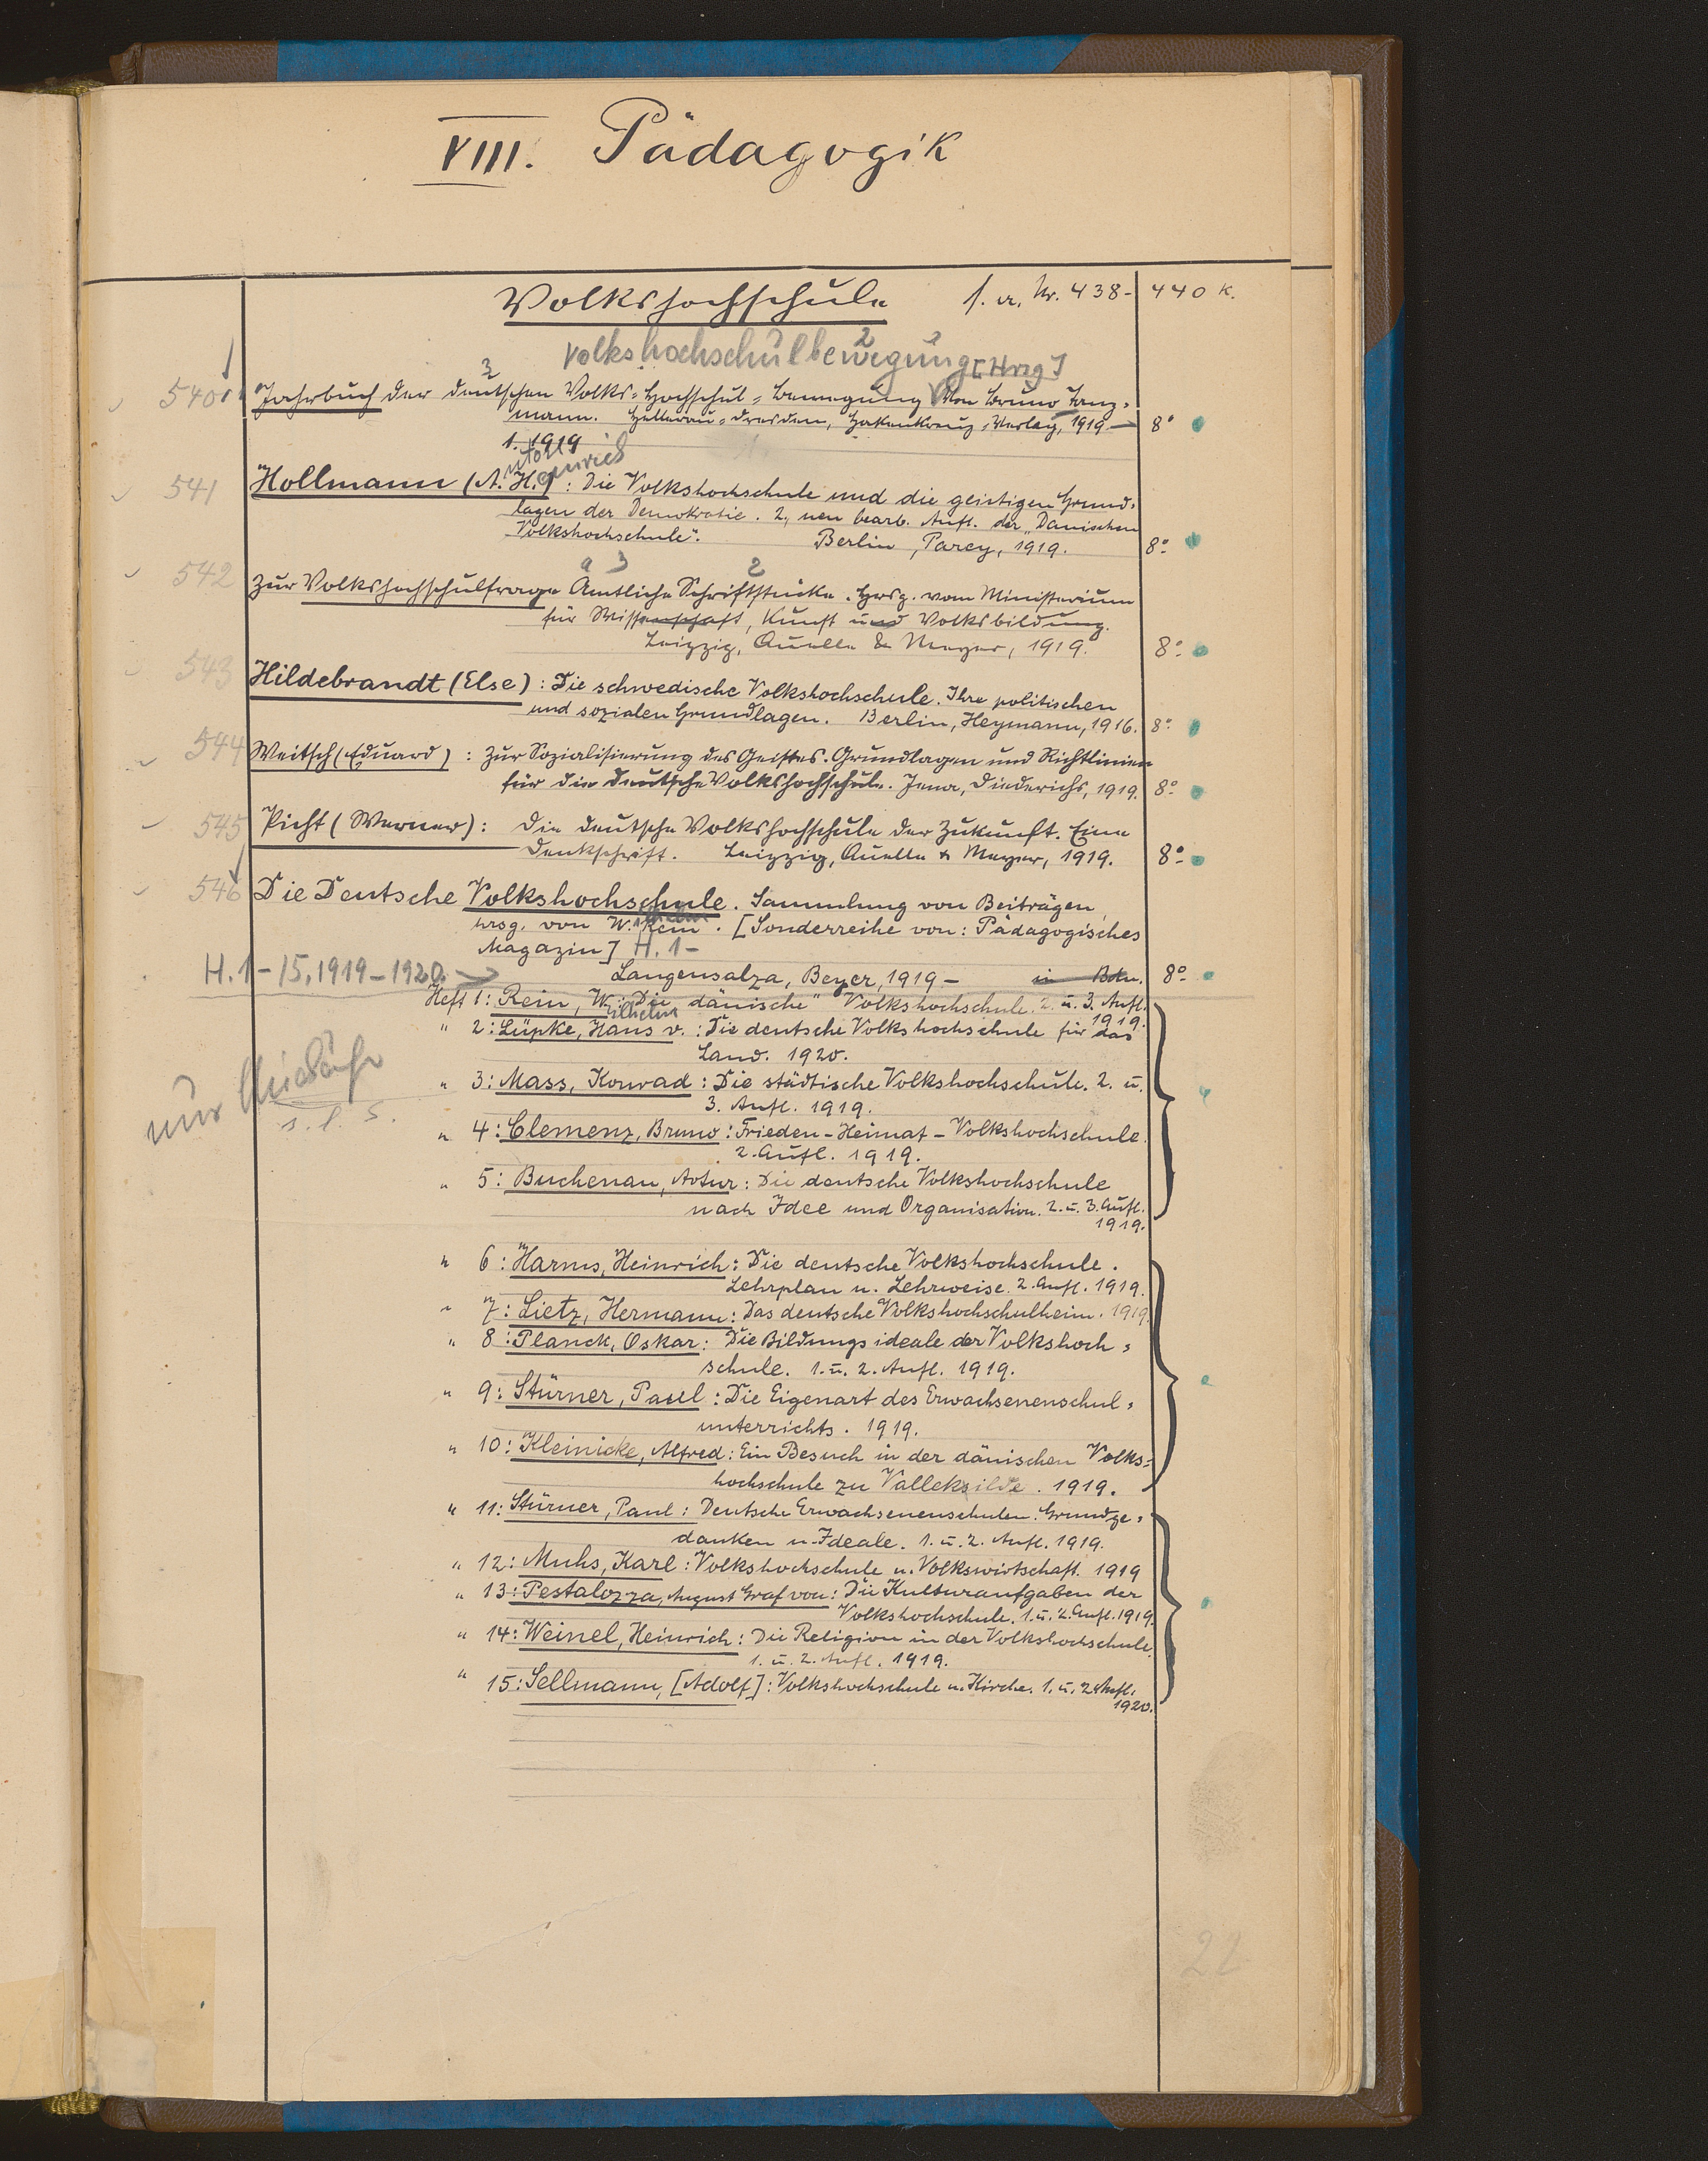 VIII. Pädagogik
Volkshochschule s. a. Nr. 438-440 k.
Volkshochschulbewegung [Hrsg]
540 Jahrbuch der deutschen Volks-Hochschul-Bewegung Von Bruno Tanz-
mann. Hellerau-Dresden, Hakenkreuz-Verlag, 1919— 8°
1. 1919
541 Hollmann (A. H.): Die Volkshochschule und die geistigen Grund-
lagen der Demokratie. 2., neu bearb. Aufl. der „Dänischen
Volkshochschule“. Berlin, Parey, 1919. 8°
542 Zur Volkshochschulfrage Amtliche Schriftstücke. Hrsg. vom Ministerium
für Wissenschaft, Kunst und Volksbildung.
Leipzig, Quelle & Meyer, 1919. 8°
543 Hildebrandt (Else): Die schwedische Volkshochschule. Ihre politischen
und sozialen Grundlagen. Berlin, Heymann, 1916. 8°
544 Weitsch (Eduard): Zur Sozialisierung des Geistes. Grundlagen und Richtlinien
für die deutsche Volkshochschule. Jena, Diederichs, 1919. 8°
545 Picht (Werner): Die deutsche Volkshochschule der Zukunft. Eine
Denkschrift. Leipzig, Quelle & Meyer, 1919. 8°
546 Die Deutsche Volkshochschule. Sammlung von Beiträgen,
hrsg. von W. Rein. [Sonderreihe von: Pädagogisches
Magazin] H. 1-
H. 1-15, 1919-1920 Langensalza, Beyer, 1919- in Bdn. 8°
Heft 1: Rein, W.: Die „dänische“ Volkshochschule. 2. u. 3. Aufl.
1919.
" 2: Lüpke, Hans v.: Die deutsche Volkshochschule für das
Land. 1920.
" 3: Mass, Konrad: Die städtische Volkshochschule. 2. u.
3. Aufl. 1919.
nur
s. l. s.
" 4: Clemenz, Bruno: Frieden-Heimat-Volkshochschule.
2. Aufl. 1919.
" 5: Buchenau, Artur: Die deutsche Volkshochschule
nach Idee und Organisation. 2. u. 3. Aufl.
1919.
" 6: Harms, Heinrich: Die deutsche Volkshochschule.
Lehrplan u. Lehrweise. 2. Aufl. 1919.
" 7: Lietz, Hermann: Das deutsche Volkshochschulheim. 1919.
" 8: Planck, Oskar: Die Bildungsideale der Volkshoch-
schule. 1. u. 2. Aufl. 1919.
" 9: Stürner, Paul: Die Eigenart des Erwachsenenschul-
unterrichts. 1919.
" 10: Kleinicke, Alfred: Ein Besuch in der dänischen Volks-
hochschule zu Vallekilde. 1919.
" 11: Stürner, Paul: Deutsche Erwachsenenschulen. Grundge-
danken u. Ideale. 1. u. 2. Aufl. 1919.
" 12: Muhs, Karl: Volkshochschule u. Volkswirtschaft. 1919
" 13: Pestalozza, August Graf von: Die Kulturaufgaben der
Volkshochschule. 1. u. 2. Aufl. 1919.
" 14: Weinel, Heinrich: Die Religion in der Volkshochschule.
1. u. 2. Aufl. 1919.
" 15: Sellmann, [Adolf]: Volkshochschule u. Kirche. 1. u. 2. Aufl.
1920.
22